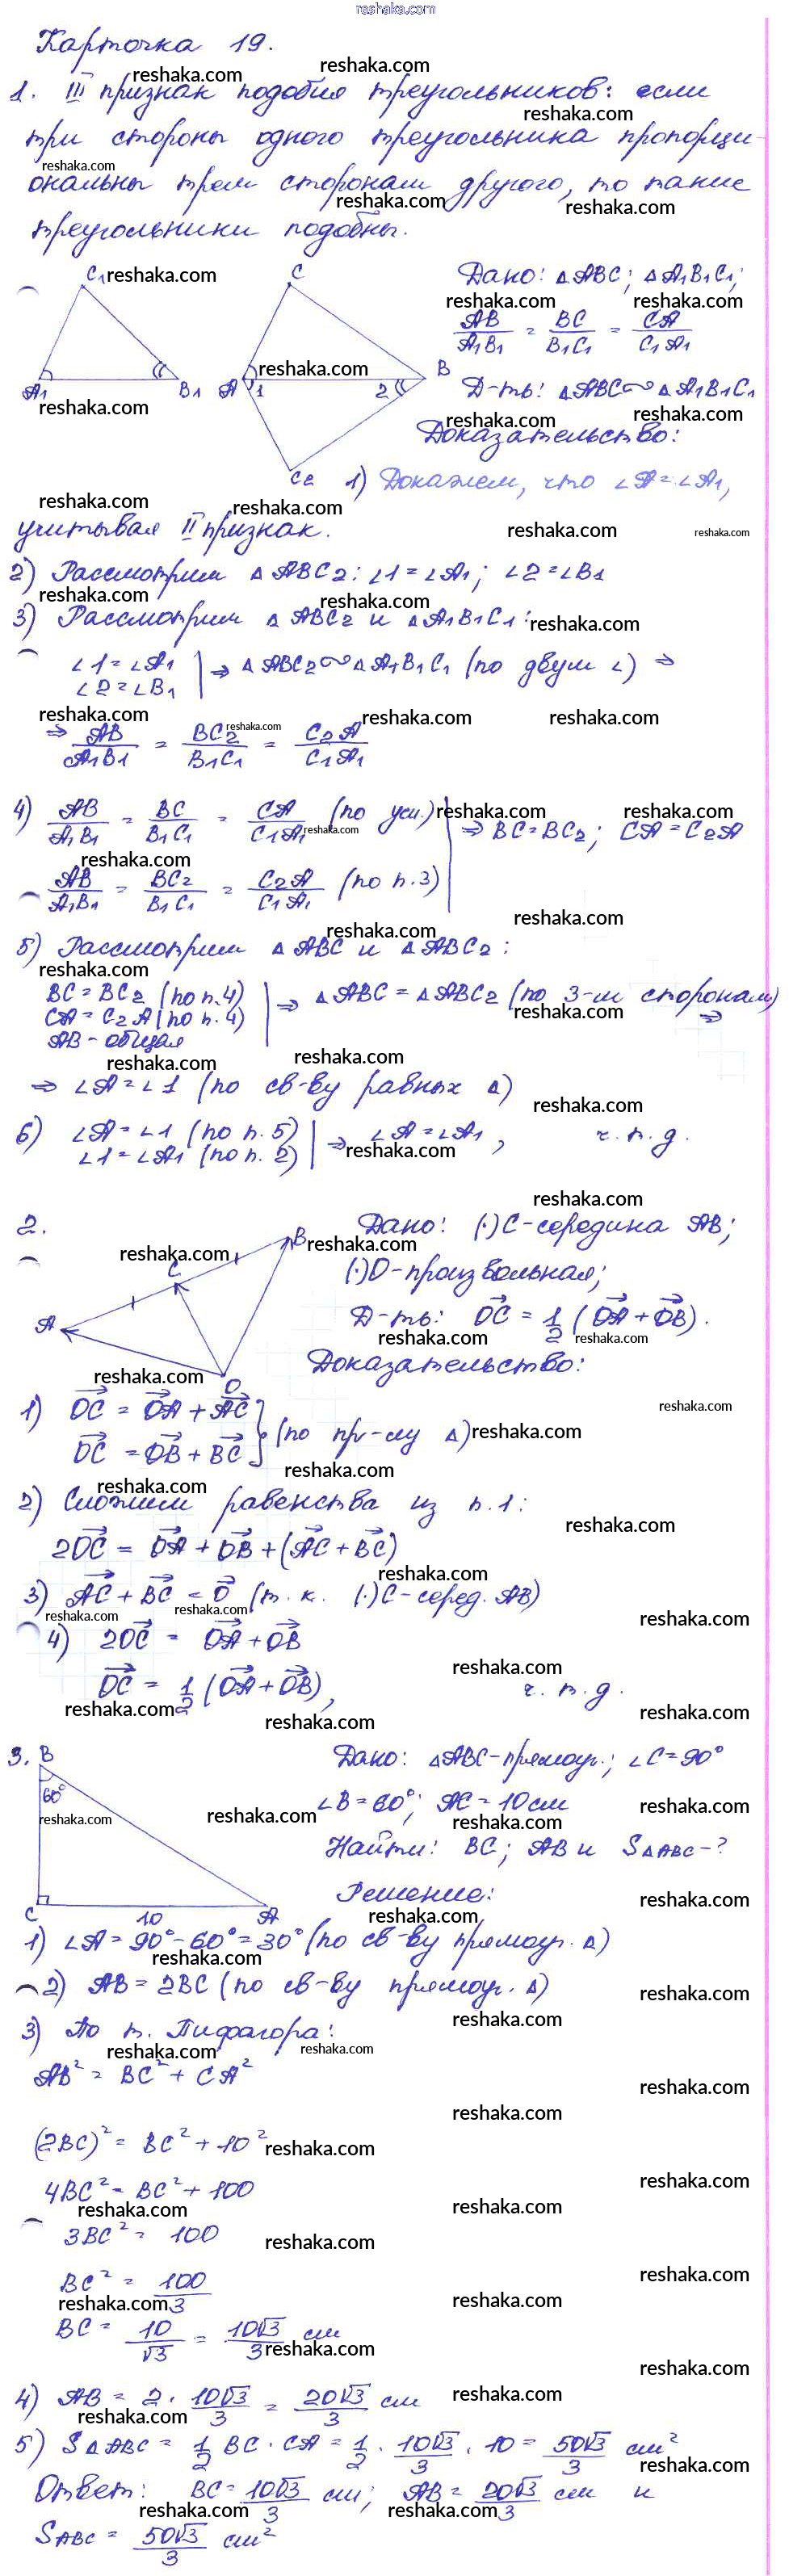 reshaka.com
Карточка 19.
1. III признак подобия треугольников: если
три стороны одного треугольника пропорци-
ональны трем сторонам другого, то такие
треугольники подобны.
C1 C
A1 B1 A 1 2 B
C2
Дано: △ABC; △A1B1C1;
AB/A1B1 = BC/B1C1 = CA/C1A1
Д-ть: △ABC ∾ △A1B1C1
Доказательство:
1) Докажем, что ∠A = ∠A1,
учитывая II признак.
2) Рассмотрим △ABC2: ∠1 = ∠A1; ∠2 = ∠B1
3) Рассмотрим △ABC2 и △A1B1C1:
∠1 = ∠A1
∠2 = ∠B1 | ⇒ △ABC2 ∾ △A1B1C1 (по двум ∠) ⇒
⇒ AB/A1B1 = BC2/B1C1 = C2A/C1A1
4) AB/A1B1 = BC/B1C1 = CA/C1A1 (по усл.) | ⇒ BC = BC2; CA = C2A
AB/A1B1 = BC2/B1C1 = C2A/C1A1 (по п.3)
5) Рассмотрим △ABC и △ABC2:
BC = BC2 (по п.4) | ⇒ △ABC = △ABC2 (по 3-м сторонам) ⇒
CA = C2A (по п.4)
AB - общая
⇒ ∠A = ∠1 (по св-ву равных △)
6) ∠A = ∠1 (по п.5) | ⇒ ∠A = ∠A1, ч.т.д.
∠1 = ∠A1 (по п.2)
2.
A C B O
Дано: (·)C - середина AB;
(·)O - произвольная;
Д-ть: OC = 1/2 (OA + OB).
Доказательство:
1) OC = OA + AC
OC = OB + BC } (по пр-лу △)
2) Сложим равенства из п.1:
2OC = OA + OB + (AC + BC)
3) AC + BC = 0 (т.к. (·)C - серед. AB)
4) 2OC = OA + OB
OC = 1/2 (OA + OB), ч.т.д.
3. B
60°
C 10 A
Дано: △ABC - прямоуг.; ∠C = 90°
∠B = 60°; AC = 10 см
Найти: BC; AB и S△ABC - ?
Решение:
1) ∠A = 90° - 60° = 30° (по св-ву прямоуг. △)
2) AB = 2BC (по св-ву прямоуг. △)
3) По т. Пифагора:
AB² = BC² + CA²
(2BC)² = BC² + 10²
4BC² = BC² + 100
3BC² = 100
BC² = 100/3
BC = 10/√3 = 10√3/3 см
4) AB = 2 · 10√3/3 = 20√3/3 см
5) S△ABC = 1/2 BC · CA = 1/2 · 10√3/3 · 10 = 50√3/3 см²
Ответ: BC = 10√3/3 см; AB = 20√3/3 см и
SABC = 50√3/3 см²